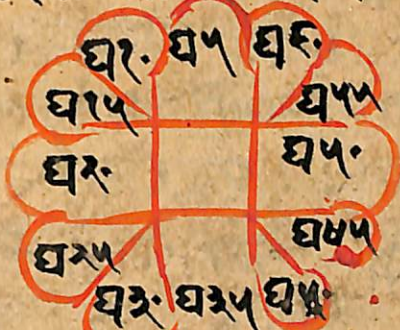 घ१० घ५ घ६०
घ१५ घ५५
घ२० घ५०
घ२५ घ४५
घ३० घ३५ घ४०